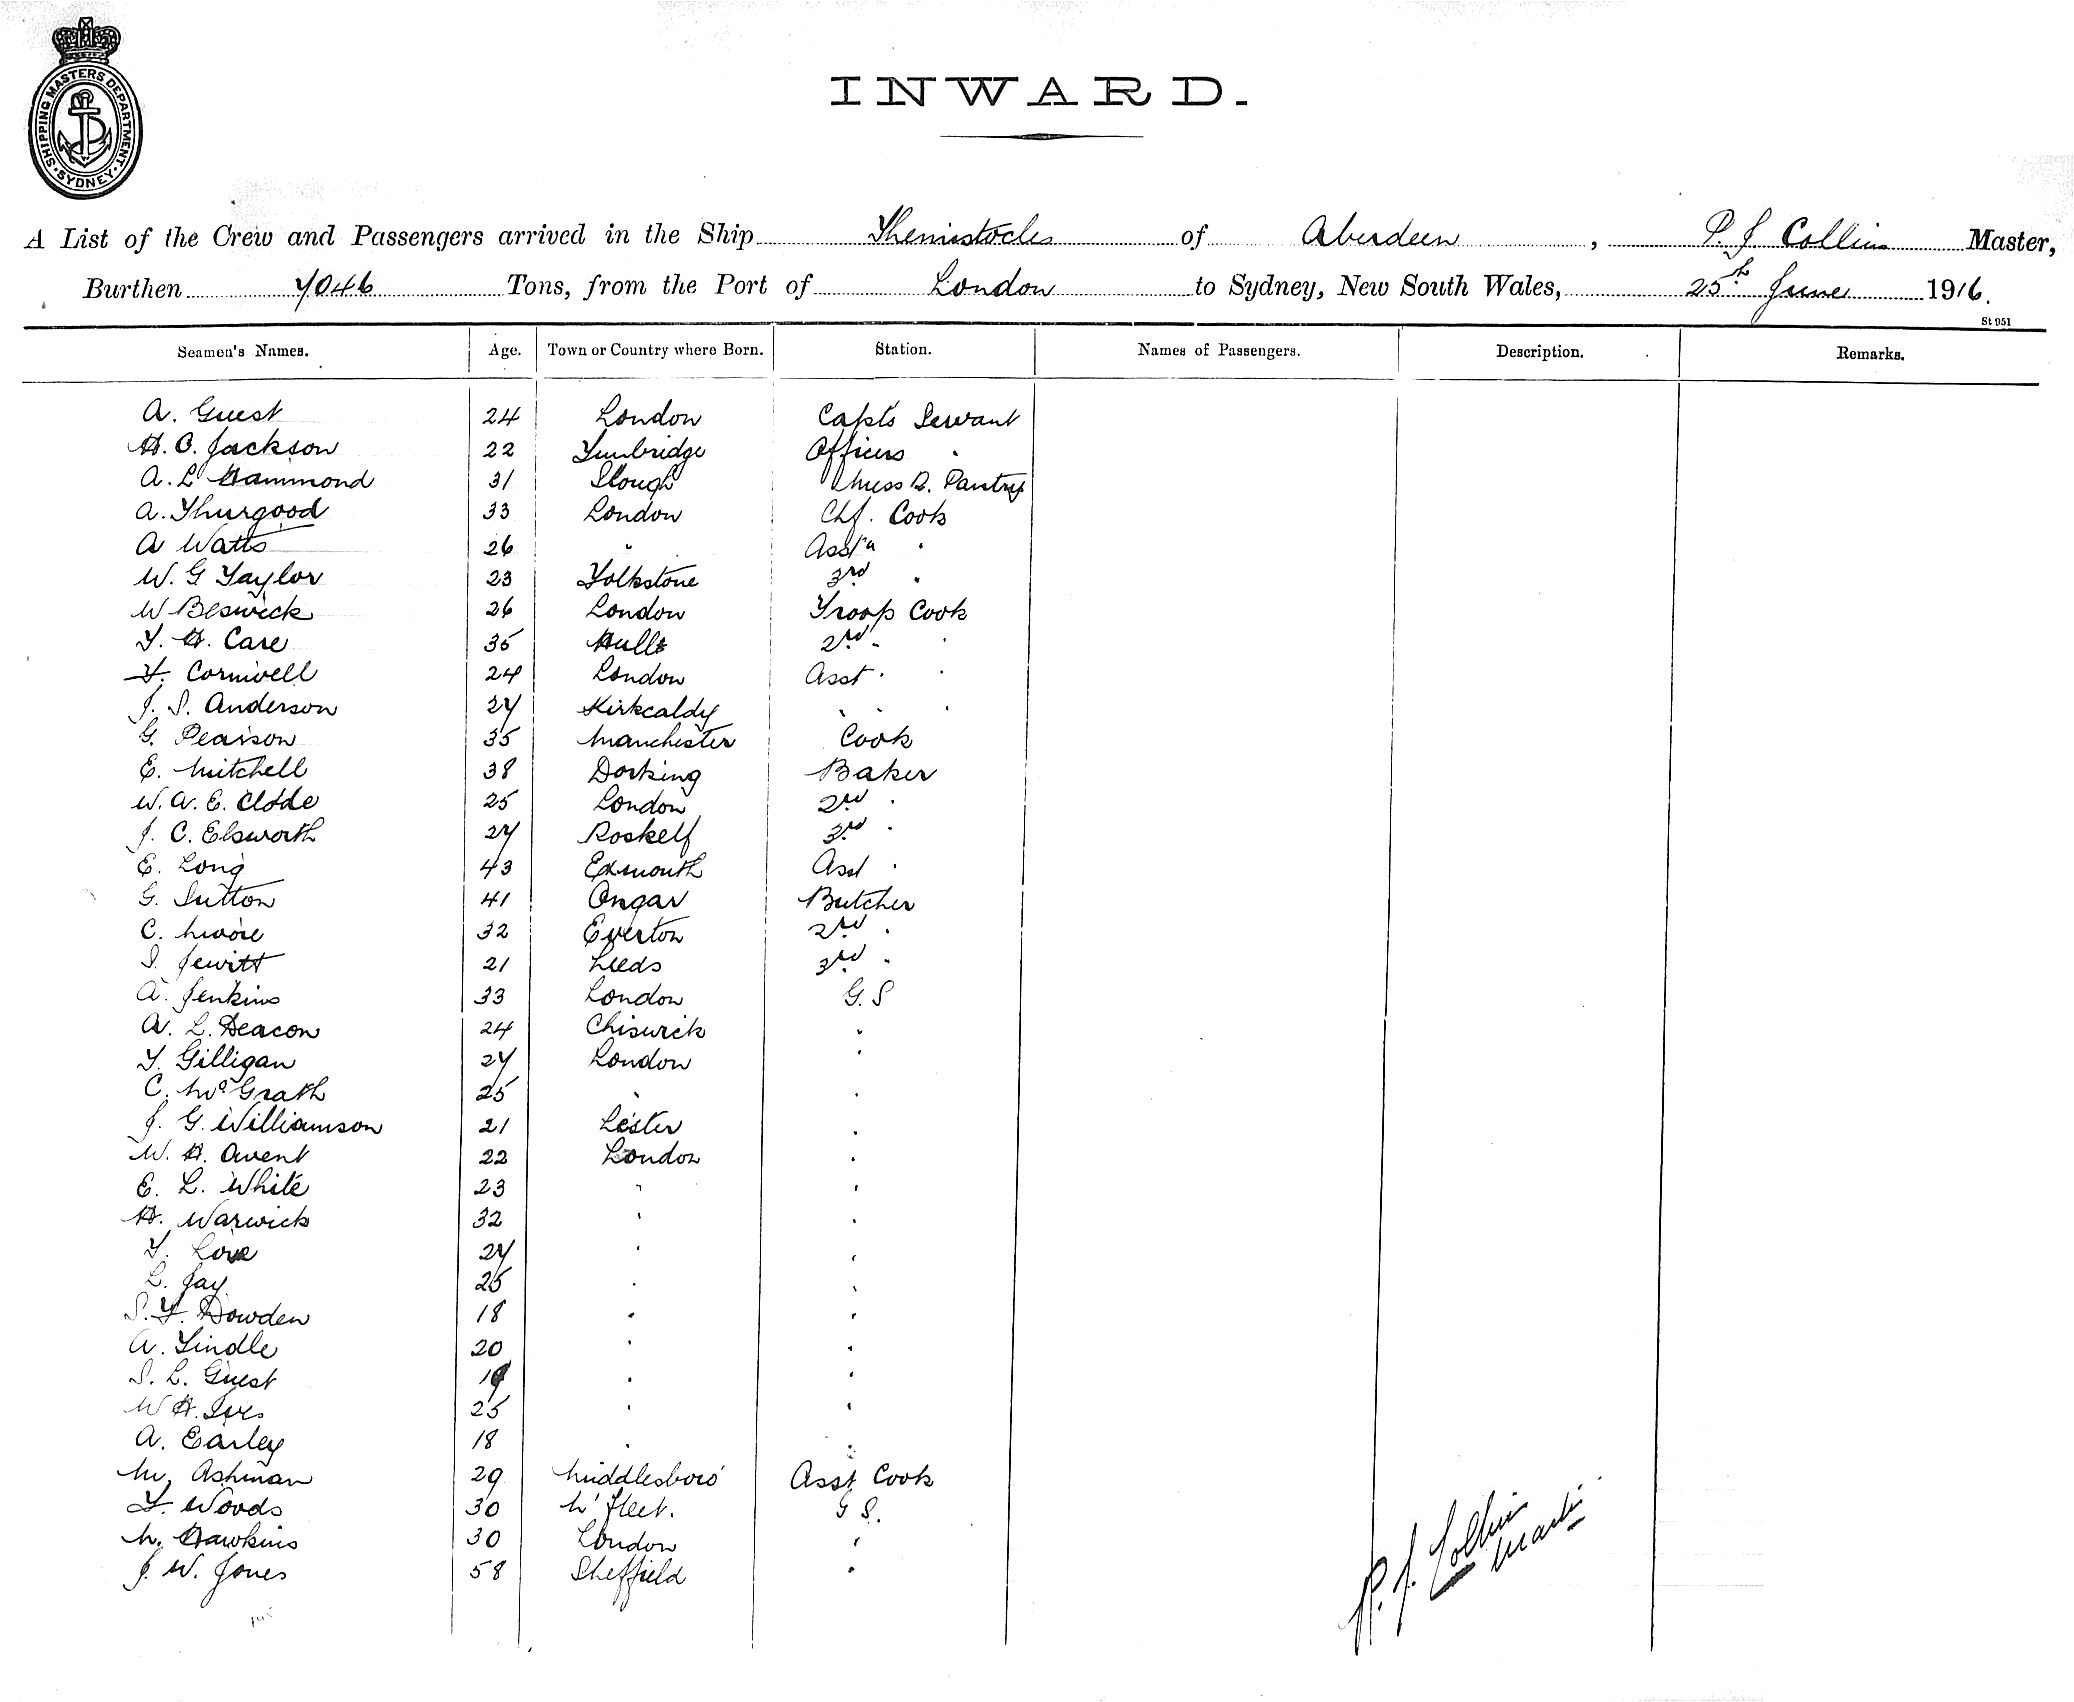 SHIPPING MASTERS DEPARTMENT. SYDNEY.
INWARD.
A List of the Crew and Passengers arrived in the Ship Themistocles of Aberdeen, P. J. Collins Master,
Burthen 7046 Tons, from the Port of London to Sydney, New South Wales, 25th June 1916.
St 951
Seamen's Names. Age. Town or Country where Born. Station. Names of Passengers. Description. Remarks.
A. Guest 24 London Capts Servant
H. C. Jackson 22 Tunbridge Officers "
A. L Hammond 31 Slough Mess R. Pantry
A. Thurgood 33 London Chf. Cook
A Watts 26 " Asst "
W. G Taylor 23 Folkstone 3rd "
W Beswick 26 London Troop Cook
T. H. Care 35 Hull 2nd " "
F. Cornwell 24 London Asst " "
J. S. Anderson 27 Kirkcaldy " " "
G. Pearson 35 Manchester Cook
E. Mitchell 38 Dorking Baker
W. A. E. Clode 25 London 2nd "
J. C. Elsworth 27 Roskelf 3rd "
E. Long 43 Exmouth Asst "
G. Sutton 41 Ongar Butcher
C. Moore 32 Everton 2nd "
S. Jewitt 21 Leeds 3rd "
A. Jenkins 33 London G. S
A. L. Deacon 24 Chiswick "
T. Gilligan 27 London "
C. McGrath 25 " "
J. G. Williamson 21 Lester "
W. H. Avent 22 London "
E. L. White 23 " "
H. Warwick 32 " "
T. Love 27 " "
L. Jay 25 " "
S. F. Dowden 18 " "
A. Tindle 20 " "
S. L. Guest 19 " "
W H. Ives 25 " "
A. Earley 18 " "
M. Ashman 29 Middlesboro' Asst Cook
F. Woods 30 N' fleet. G S.
M. Hawkins 30 London "
J. W. Jones 58 Sheffield "
P. J. Collins
Master